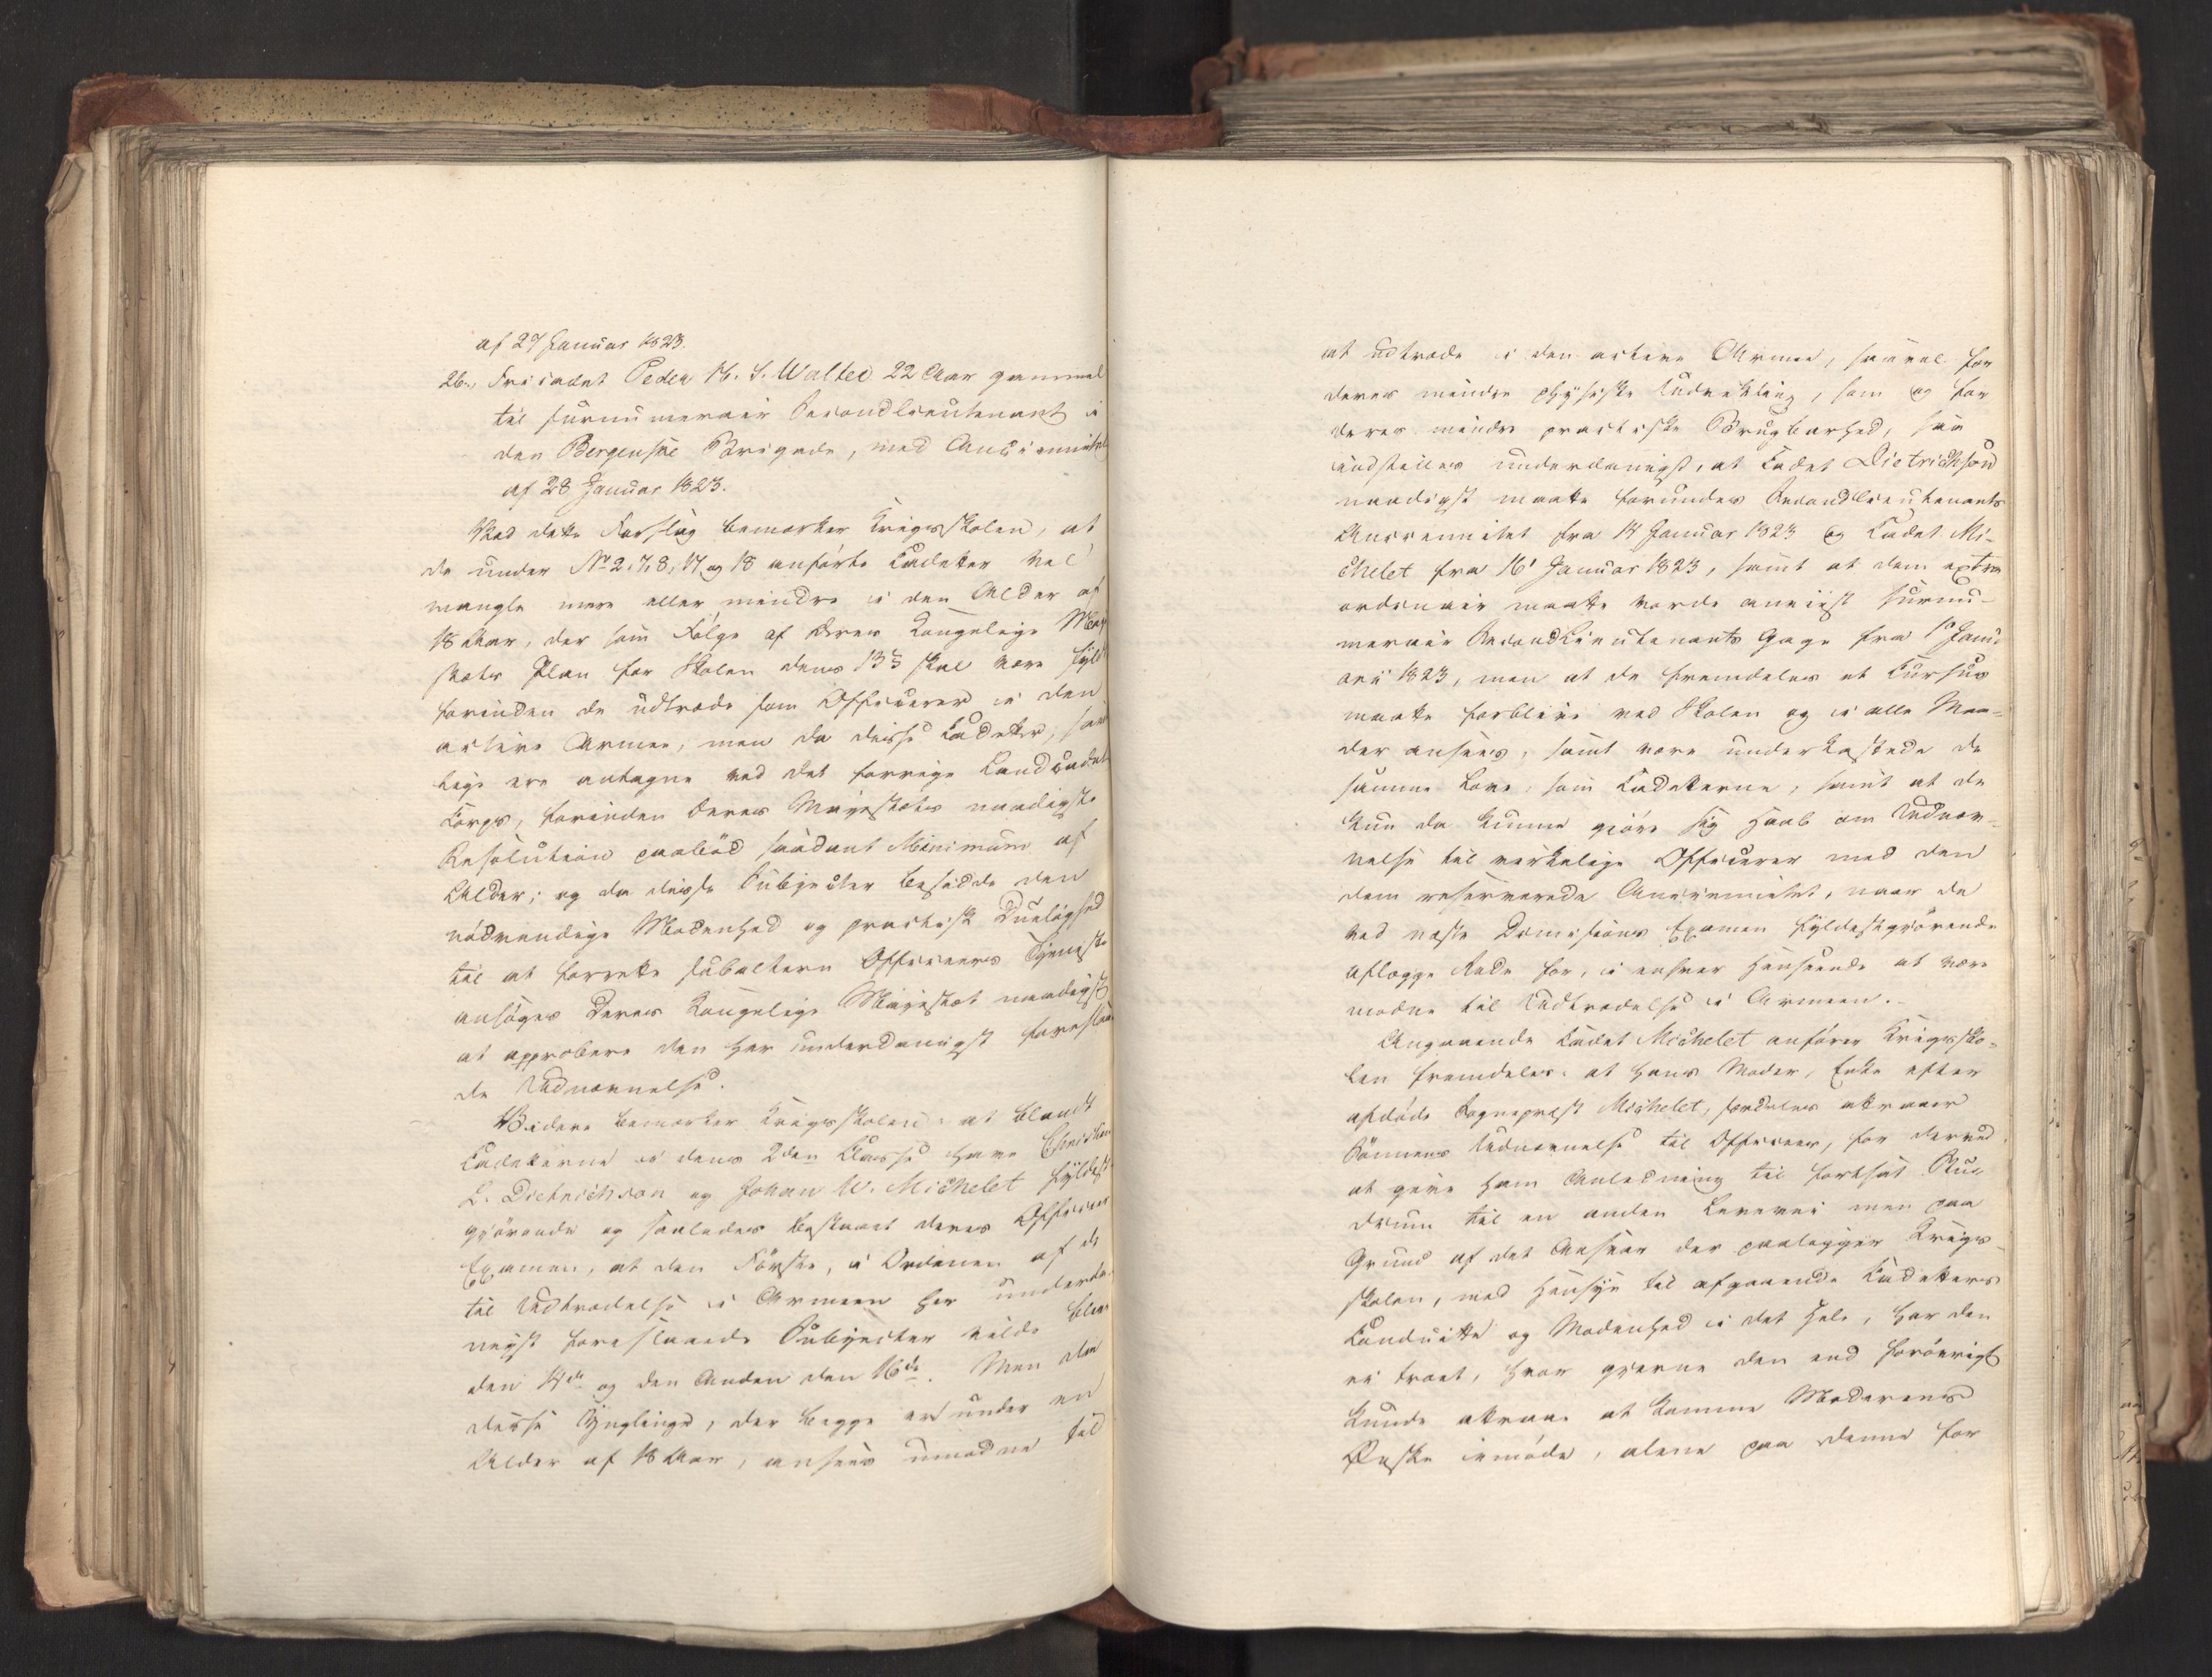 af 27 Januar 1823.
26., Fricadet Peder H. S. Walter 22 Aar gammel
til surnumerair Secondlieutenant i
den Bergenske Brigade, med Anciennitet
af 28 Januar 1823.
Ved dette Forslag bemærker Krigsskolen, at
de under No 2, 7, 8, 17 og 18 anførte Cadetter vel
mangle mere eller mindre i den Alder af
18 Aar, der som Følge af Deres Kongelige Maje
stæts Plan for Skolen dens 13 § skal være fyldt
forinden de udtræde som Officerer i den
active Armee, men da disse Cadetter, sam
lige ere antagne ved det forrige Landcadet
Corps, forinden Deres Majestæts naadigste
Resolution paabød saadant Minimum af
Alder; og da disse Subjecter besidde den
nødvendige Modenhed og practisk Duelighed
til at forrette subaltern Officeers Tjeneste
ansøges Deres Kongelige Majestæt naadigst
at approbere den her underdanigst foreslaae
de Udnævnelse.
Videre bemærker Krigsskolen: at blandt
Cadetterne i dens 2den Classe have Christian
L. Dietrichson og Johan W. Michelet fyldest
gjørende og saaledes bestaaet deres Officeers
Examen, at den Første, i Ordenen af de
til Udtrædelse i Armeen her underda-
nigst foreslaaede Subjecter vilde blive
den 14de og den Anden den 16de. Men da
disse Ynglinge, der begge er under en
Alder af 18 Aar, ansees umodne til
at udtræde i den active Armee, saavel for
deres mindre physiske Udvikling, som og for
deres mindre practiske Brugbarhed, saa
indstilles underdanigst, at Cadet Dietrichson
naadigst maatte forundes Secondlieutenants
Anciennitet fra 14 Januar 1823 og Cadet Mi-
chelet fra 16 Januar 1823, samt at dem extra
ordinair maatte vorde anviist surnu-
merair Secondlieutenants Gage fra 1ste Janu-
arii 1823, men at de fremdeles et Cursus
maatte forblive ved Skolen og i alle Maa-
der ansees, samt være underkastede de
samme Love, som Cadetterne, samt at de
kun da kunne gjøre sig Haab om Udnæv-
nelse til virkelige Officerer med den
dem reserverede Anciennitet, naar de
ved næste Dimissions Examen fyldestgjørende
aflægge Rede for, i enhver Henseende at være
modne til Udtrædelse i Armeen.
Angaaende Cadet Michelet anfører Krigssko-
len fremdeles: at hans Moder, Enke efter
afdøde Sognepræst Michelet, særdeles attraaer
Sønnens Udnævnelse til Officeer, for derved
at give ham Anledning til fortsat Stu-
dium til en anden Levevei men paa
Grund af det Ansvar der paaligger Krigs-
skolen, med Hensyn til afgaaende Cadetters
Conduitte og Modenhed i det Hele, har den
ei troet, hvor gjerne den end forøvrigt
kunde attraae at komme Moderens
Ønske imøde, alene paa denne for